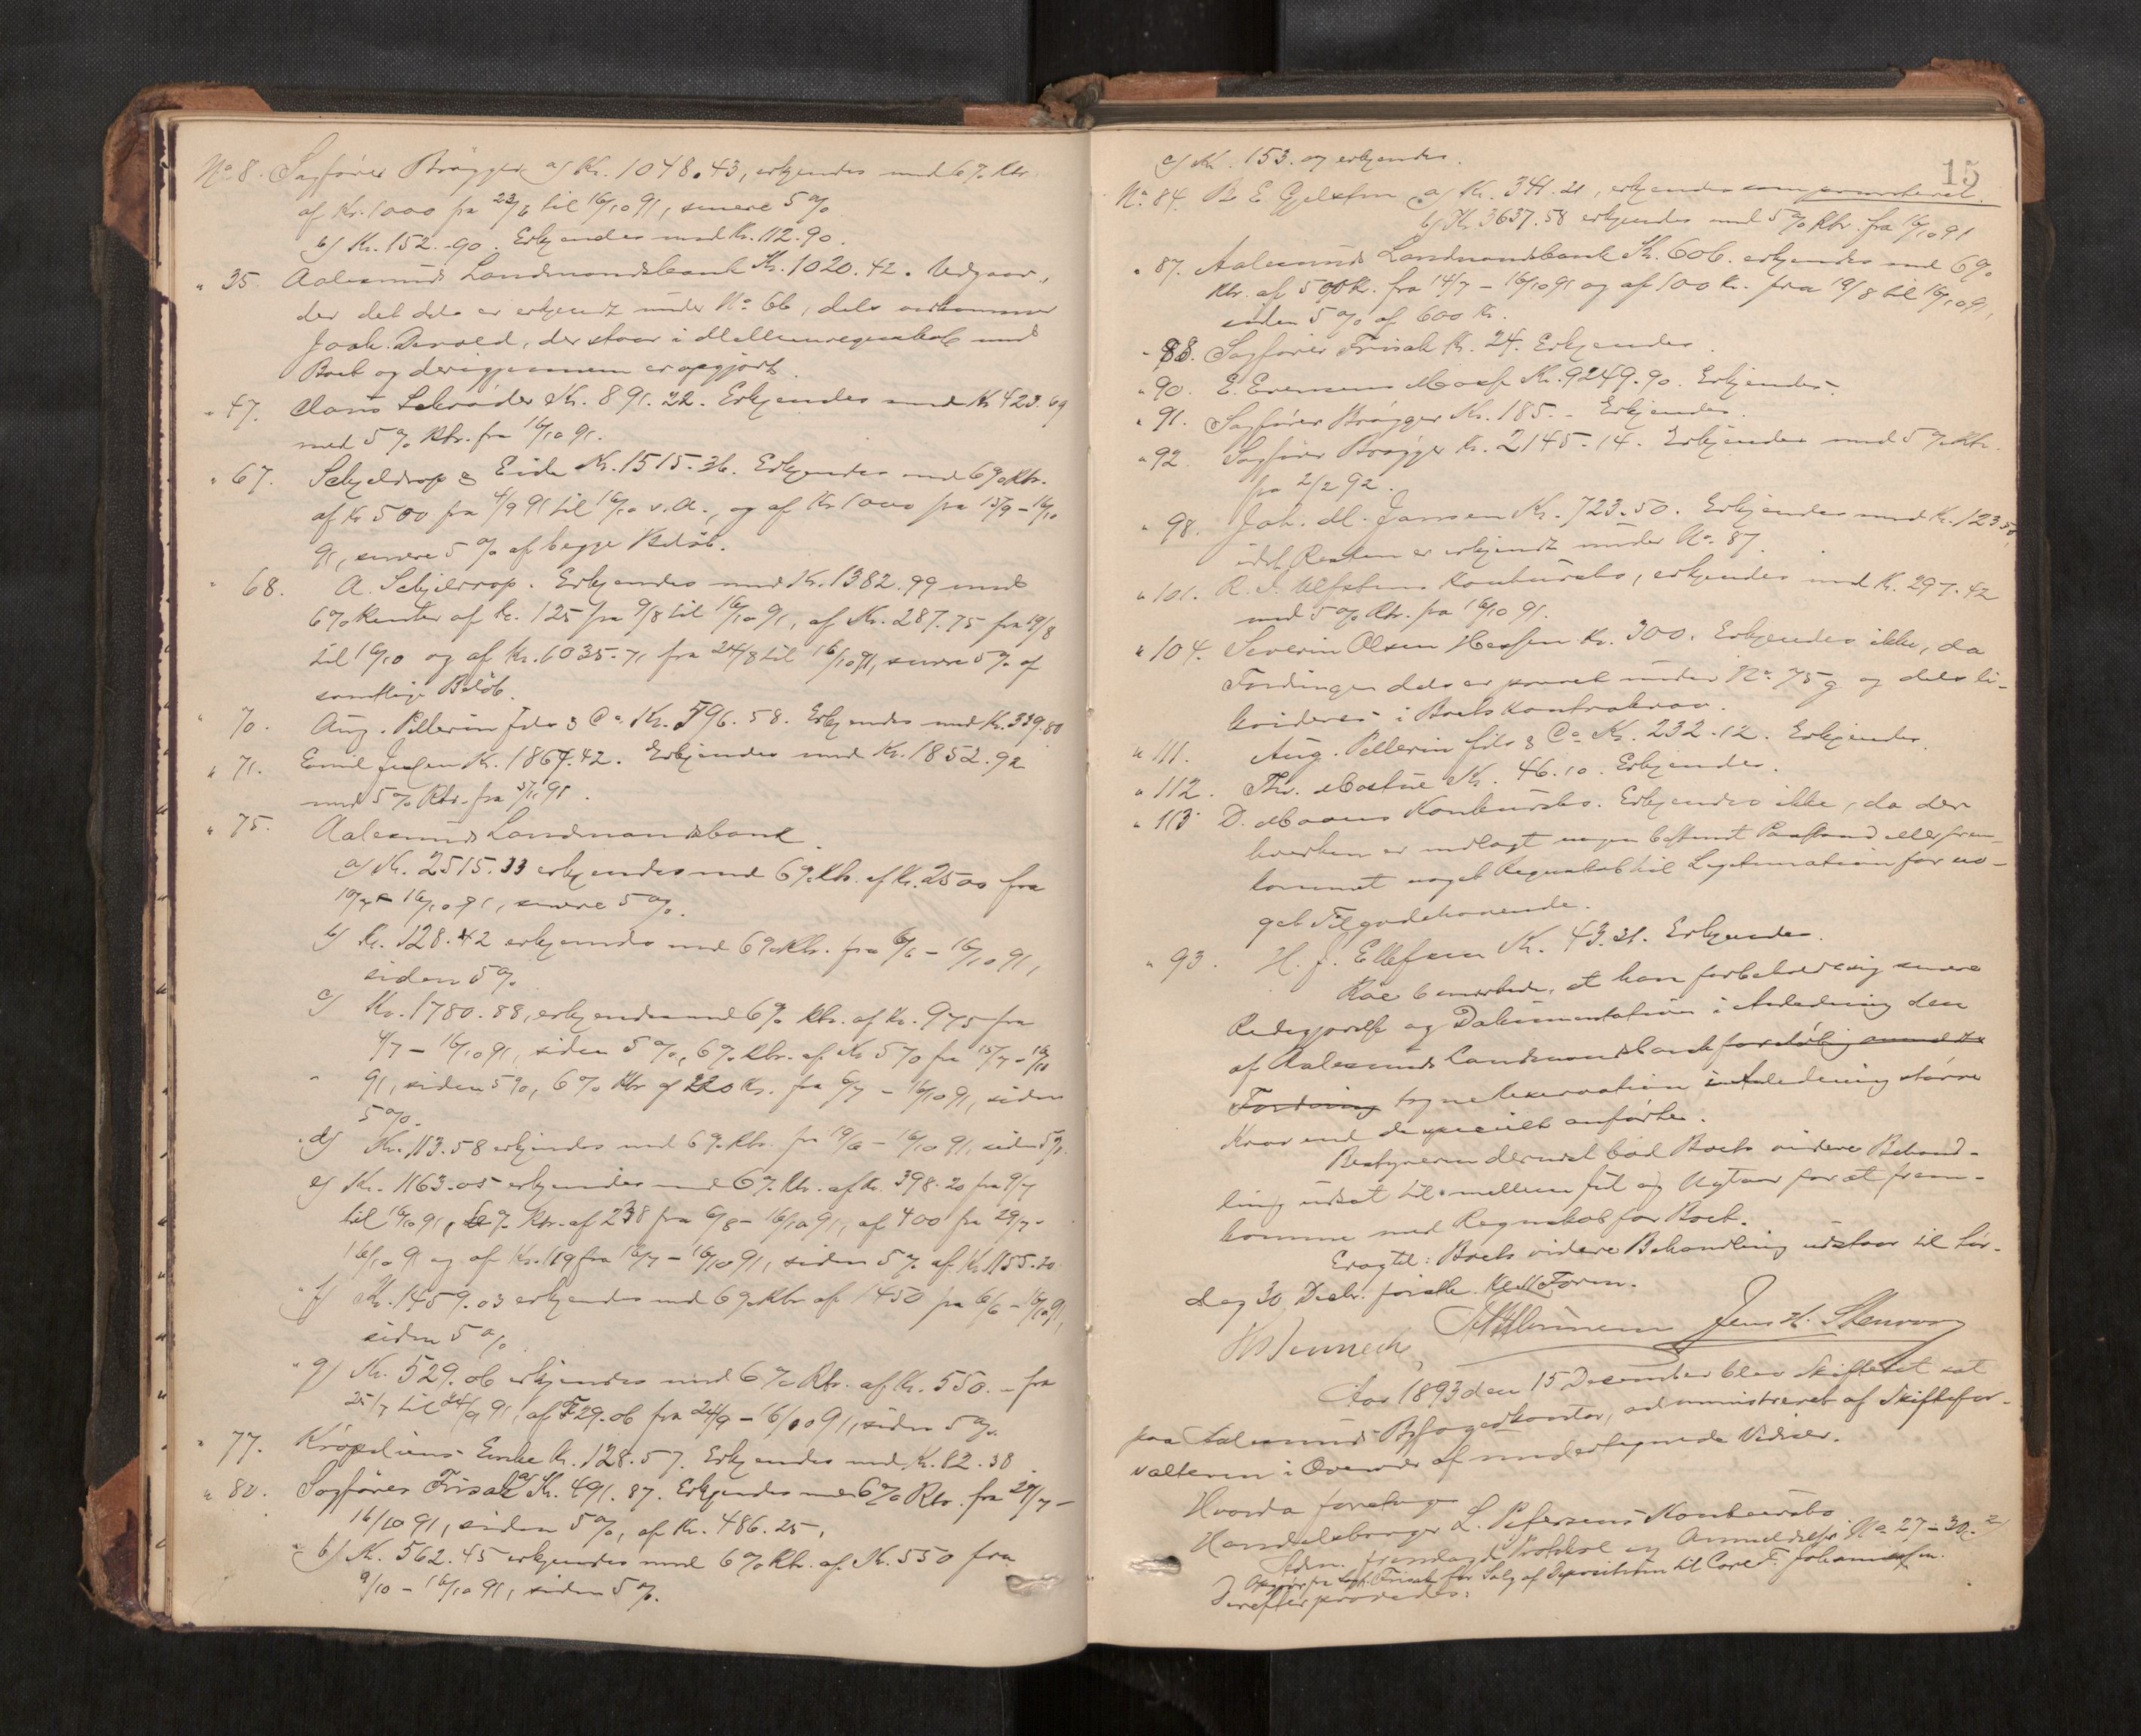 No 8. Sagfører Brøgger a) Kr. 1048.43, erkjendes med 6% Rtr.
af Kr. 1000 fra til 16/10 91, senere 5%
b) Kr. 152.90. Erkjendes med Kr. 112.90.
" 35 Aalesunds Landmandsbank Kr. 1020.42. Udgaar,
der det dels er erkjendt under No. 66, dels vedkommer
Joak. Devold, der staar i Mellemregnskab med
Boet og derigjennem er opgjort.
" 47. Claus Schrøder Kr. 891.22. Erkjendes med Kr 423.69
med 5% Rtr. fra 16/10 91.
" 67. Schjeldrop & Eide Kr. 1515.36. Erkjendes med 6% Rtr.
af Kr 500 fra 4/9 91 til 16/10 s.A., og af Kr 1000 fra 15/9 - 16/10
91, senere 5% af begge Beløb.
" 68. A. Schjelrop. Erkjendes med Kr. 1382.99 med
6% Renter af Kr. 125 fra 9/8 til 16/10 91, af Kr. 287.75 fra 19/8
til 16/10 og af Kr. 1035.71 fra 24/8 til 16/10 91, senere 5% af
samtlige Beløb.
" 70. Aug. Pellerin fils & Co. Kr. 596.58. Erkjendes med Kr. 339.80
" 71. Emil Kr. 1864.42. Erkjendes med Kr. 1852.92
med 5% Rtr. fra 91.
" 75. Aalesunds Landmandsbank
a) Kr. 2515.33 erkjendes med 6% Rtr. af Kr. 2500 fra
- 16/10 91, senere 5%.
b) Kr. 128.42 erkjendes med 6% Rtr. fra 6/6 - 16/10 91,
siden 5%
c) Kr. 1780.88, erkjendes med 6% Rtr. af Kr. 975 fra
4/7 - 16/10 91, siden 5%, 6% Rtr. af Kr 570 fra 15/7 - 16/10
91, siden 5%, 6% Rtr af 220 Kr. fra 6/7 - 16/10 91, siden
5%.
d) Kr. 113.58 erkjendes med 6% Rtr. fra 19/6 - 16/10 91, siden 5%.
e) Kr. 1163.05 erkjendes med 6% Rtr. af Kr. 398.20 fra 9/7
til 16/10 91, 6% Rtr. af 238 fra 6/8 - 16/10 91, af 400 fra 29/7 -
16/10 91 og af Kr. 119 fra 16/7 - 16/10 91, siden 5% af Kr. 1155.20
f) Kr. 1459.03 erkjendes med 6% Rtr af 1450 fra 6/6 - 16/10 91,
siden 5%.
g) Kr. 529.06 erkjendes med 6% Rtr. af Kr. 550.- fra
25/7 til 24/9 91, af 529.06 fra 24/9 - 16/10 91, siden 5%.
" 77. Krøpeliens Enke Kr. 128.57. Erkjendes med Kr. 82.38
" 80. Sagfører Frisak a) Kr. 491.87. Erkjendes med 6% Rtr. fra 27/7 -
16/10 91, siden 5%, af Kr. 486.25,
b) Kr. 562.45 erkjendes med 6% Rtr. af Kr. 550 fra
9/10 - 16/10 91, siden 5%.
15
c) Kr. 153. og erkjendes.
No. 84. B E Gjelsten a) Kr. 341.21, erkjendes som
b) Kr. 3637.58 erkjendes med 5% Rtr. fra 16/10 91
" 87. Aalesunds Landmandsbank Kr. 606. erkjendes med 6%
Rtr. af 500 Kr. fra 14/7 - 16/10 91 og af 100 Kr. fra 19/8 til 16/10 91,
siden 5% af 600 Kr.
" 88. Sagfører Frisak Kr. 24. Erkjendes.
" 90. E. Evensens Kr. 9249.90. Erkjendes.
" 91. Sagfører Brøgger Kr. 185.- Erkjendes.
" 92. Sagfører Brøgger Kr. 2145.14. Erkjendes med 5% Rtr.
fra 2/2 92.
" 98. Joh. M. Jansen Kr. 723.50. Erkjendes med Kr. 123.50,
idet Resten er erkjendt under No. 87.
" 101. R. J. Ulfstens Konkursbo, erkjendes med Kr. 297.42
med 5% Rtr. fra 16/10 91.
" 104. Severin Olsen Hessen Kr. 300. Erkjendes ikke, da
Fordringen dels er under No. 75 g og dels li-
kvideres i Boets Kontrakrav.
" 111. Aug. Pellerin fils & Co Kr. 232.12. Erkjendes.
" 112. Thv. Kr. 46.10. Erkjendes.
" 113 D. Konkursbo. Erkjendes ikke, da der
hverken er nedlagt nogen bestemt Paastand eller frem-
kommet noget Regnskab til Legitimation for no-
get Tilgodehavende.
" 93. H. J. Ellefsen Kr. 43.21. Erkjendes.
bemærkede, at han forbeholder sig senere
Redegjørelse og Dokumentation i Anledning den
af Aalesunds Landmandsbank foreløbig anmeldte
Fordring Reservation i Anledning større
Krav end de specielt anførte.
Bestyreren derimod bad Boets videre Behand-
ling udsat til mellem Jul og Nytaar for at frem-
komme med Regnskab for Boet.
Eragtet: Boets videre Behandling udstaar til Lør-
dag 30 Decbr. førstk. Kl 11 Form.
Jens H.
Aar 1893 den 15 December blev Skifteret sat
paa Aalesunds Byfogedkontor, administreret af Skiftefor-
valteren i Overvær af undertegnede Vidner.
Hvorda foretoges
Handelsborger L. Petersens Konkursbo
Adm. fremlagde Protokol og Anmeldelse No. 27-30.
fra Sagf. Frisak for Salg af til Carl F. Johannessen.
Derefter prøvedes: